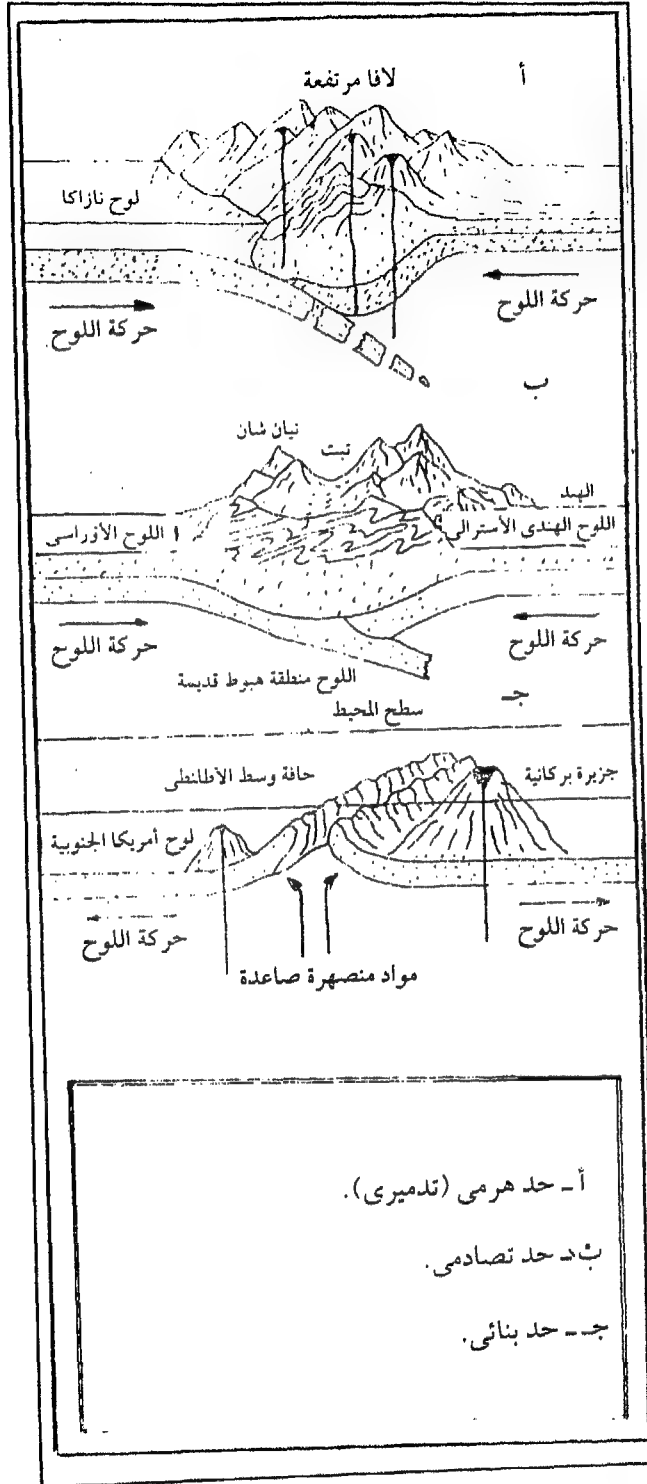 أ
لافا مرتفعة
لوح نازاكا
حركة اللوح
حركة اللوح
ب
نيان شان
تبت
الهند
اللوح الهندى الأسترالى
اللوح الأوراسى
حركة اللوح
حركة اللوح
اللوح منطقة هبوط قديمة
جـ
سطح المحيط
حافة وسط الأطلنطى
جزيرة بركانية
لوح أمريكا الجنوبية
حركة اللوح
حركة اللوح
مواد منصهرة صاعدة
أ ـ حد هرمى (تدميرى).
ب ـ حد تصادمى.
جـ ـ حد بنائى.